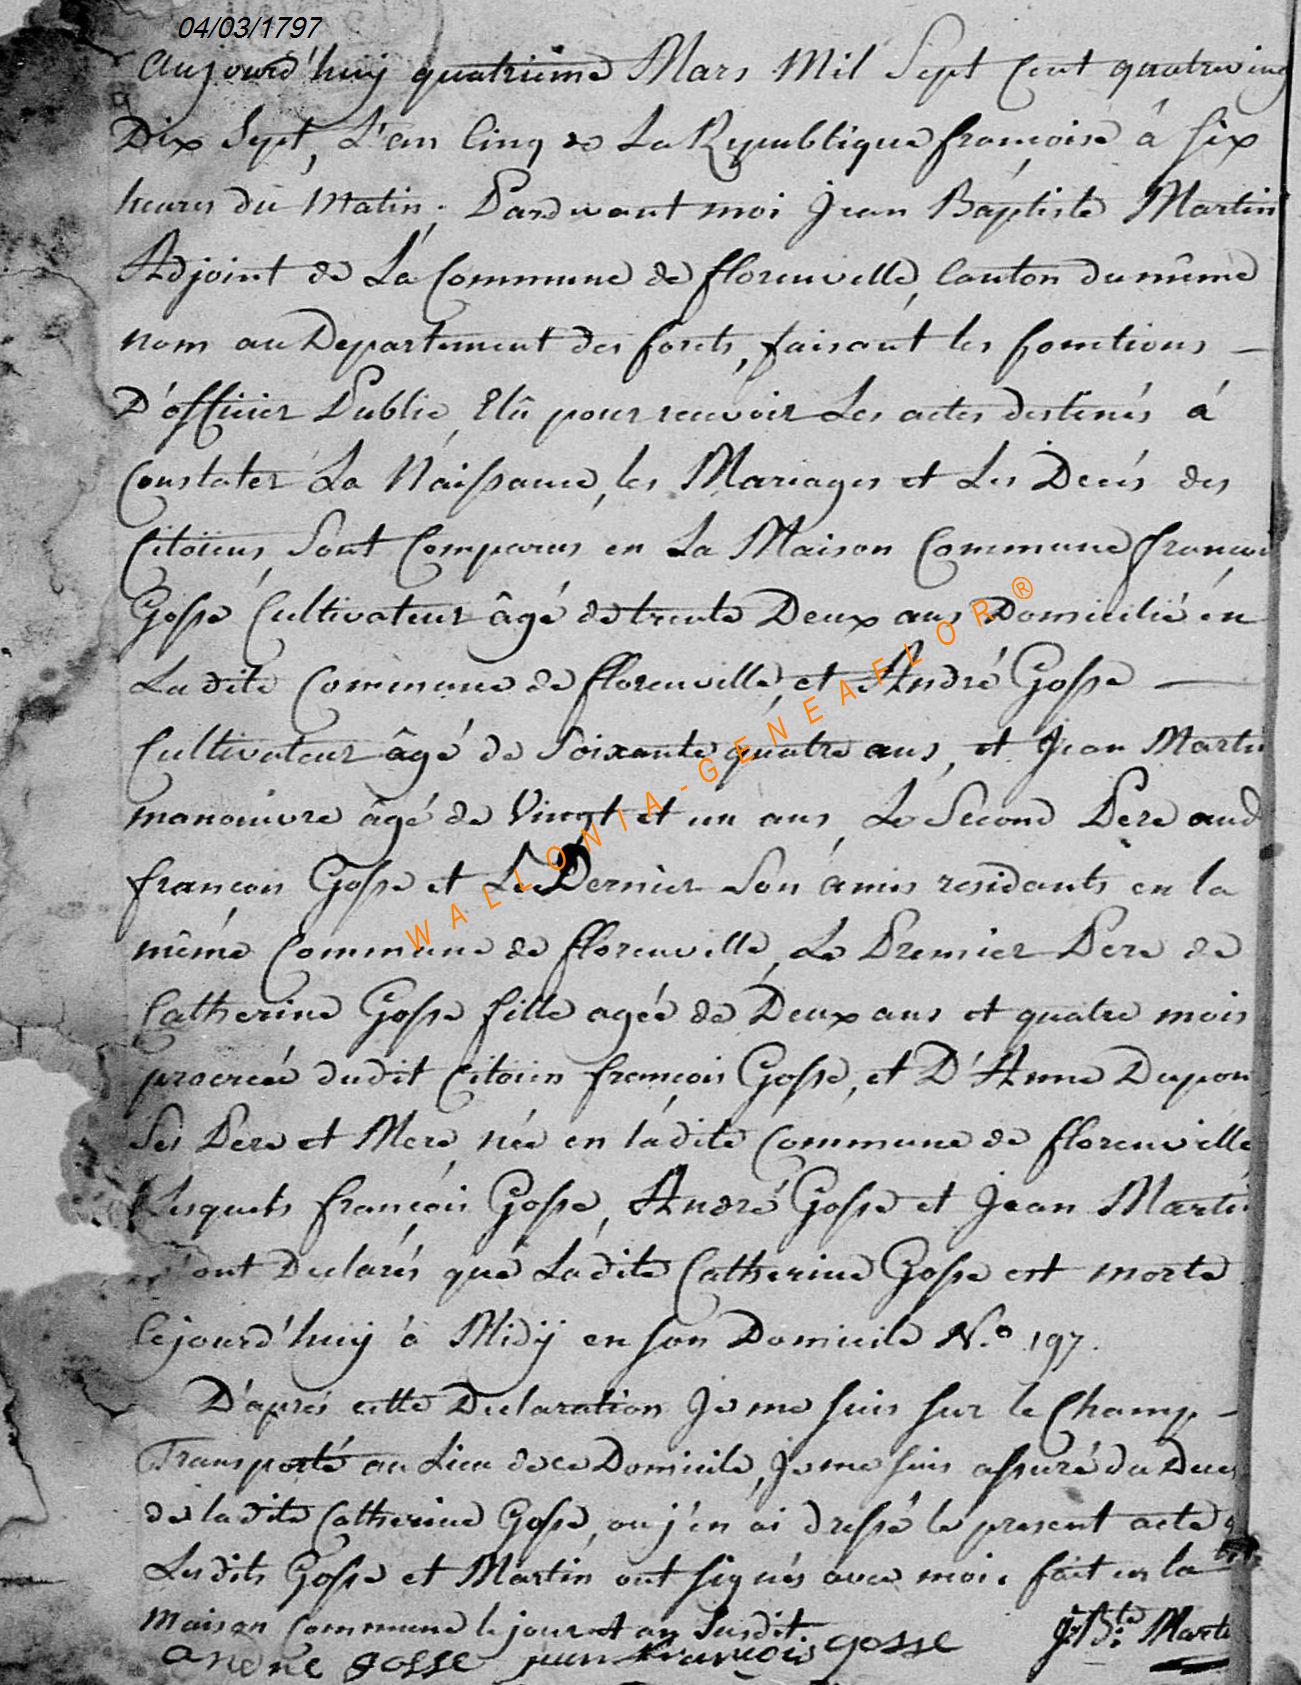 04/03/1797
Aujourd'huy quatriême Mars Mil Sept Cent quatreving
Dix Sept, L'an Cinq de La Republique françoise à Six
heures du Matin; Pardevant moi Jean Baptiste Martin
Adjoint de La Commune de florenville, Canton du même
nom au Departement des forets, faisant les fonctions —
D'officier Public, Elû pour recevoir Les actes destinés à
Constater La Naissance, les Mariages et Les Decés des
Citoiens, Sont Comparus en La Maison Commune françois
Gosse Cultivateur âgé de trente Deux ans Domicilié en
La dite Commune de florenville, et André Gosse —
Cultivateur âgé de Soixante quatre ans, et Jean Martin
manoeuvre âgé de Vingt et un ans, Le Second Pere aud
françois Gosse et Le Dernier Son amis residants en la
même Commune de florenville, Le Premier Pere de
Catherine Gosse fille agée de Deux ans et quatre mois
procreée dudit Citoien françois Gosse, et D'Anne Dupon
Ses Pere et Mere, née en ladite Commune de florenville
Lesquels françois Gosse, André Gosse et Jean Martin
m'ont Declarés que Ladite Catherine Gosse est morte
Cejourd'huÿ à Midÿ en son Domicile N.º 197.
D'aprés cette Declaration Je me suis sur le Champ —
Transporté au Lieu de ce Domicile, Je me suis assuré du Deces
de la dite Catherine Gosse, ou j'en ai dressé le present acte q
Lesdits Gosse et Martin ont signés avec moi. fait en la
Maison Commune le jour et an Susdit
andre gosse jean francois gosse J. Bte Marti
WALLONIA-GENEAFLOR®